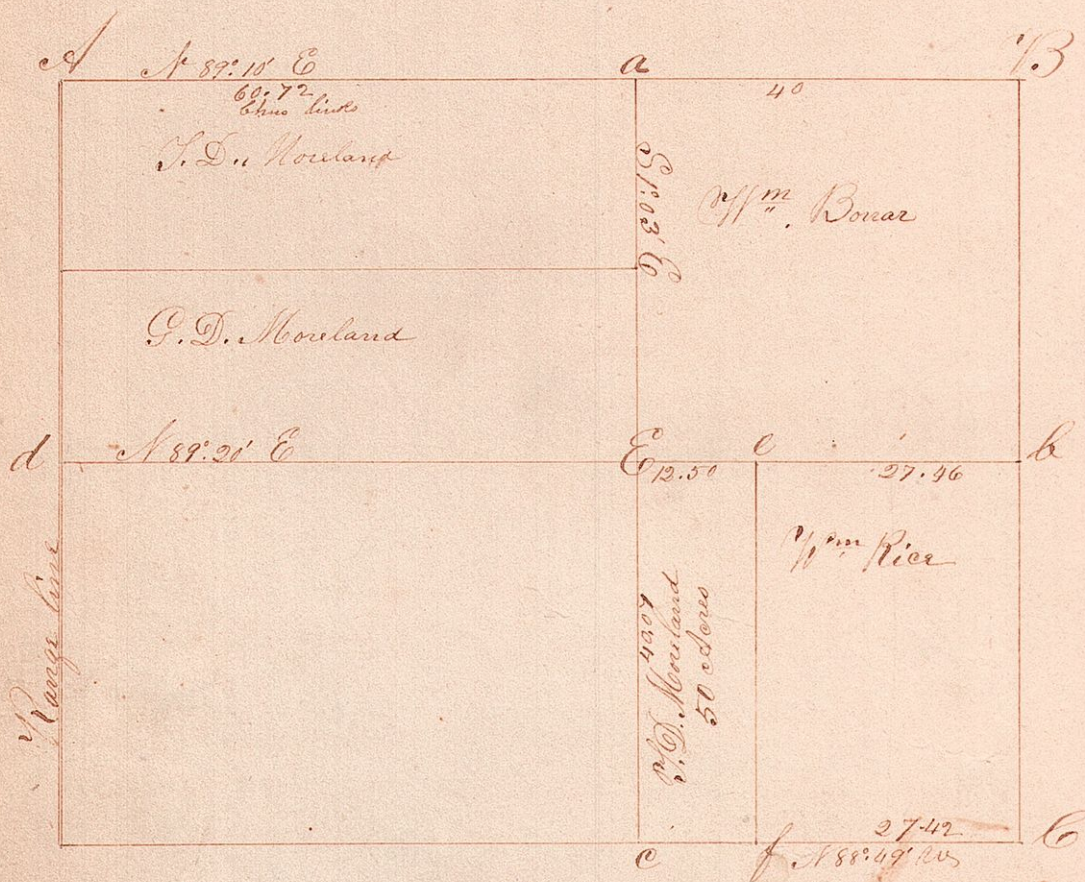 A
N 89° 10' E
a
B
60.72
links
40
T. D. Moreland
S 1° 03' E
Wm. Bonar
G. D. Moreland
d
N 89° 20' E
E
12.50
e
27.46
b
Range line
Wm Rice
T. D. Moreland
50 Acres
27.42
C
c
f
N 88° 49'